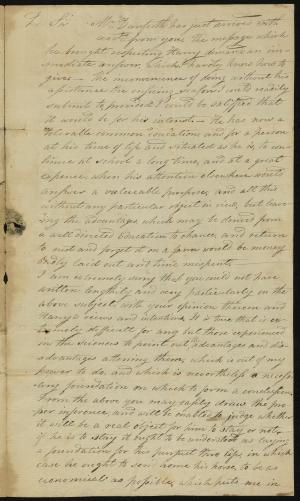 Dr Sir Mr Danforth has just arrived with
word from you, the message which
he brought respecting Harry demands an im-
mediate answer, which I hardly know how to
give — the inconvenience of doing without his
assistance the ensuing season I wd. readily
submit to provided I could be satisfied that
it would be for his interest — He has now a
tolerable common education and for a person
at his time of life and situated as he is, to con-
tinue at school a long time, and at a great
expence, when his attention elsewhere would
answer a valueable purpose, and all this
without any particular object in view, but leav-
ing the advantages which may be derived from
a well directed Education to chance, and return
to rust and forget it on a farm would be money
badly laid out and time misspent —
I am extremely sorry that you could not have
written lengthily and very particularly on the
above subject with your opinion thereon and
Harrys views and intentions. It is true that it is ex-
tremely difficult for any but those experienced
in the sciences to point out advantages and dis-
advantages attening them, which is out of my
power to do, and which is nevertheless a necess-
ary foundation on which to form a conclusion.
From the above you may safely draw the pro-
per inference, and will be enabled to judge whether
it will be a real object for him to stay or not,
if he is to stay it ought to be understood as laying
a foundation for his pursuit thro life, in which
case he ought to send home his horse, to be as
economical as possible, which puts me in